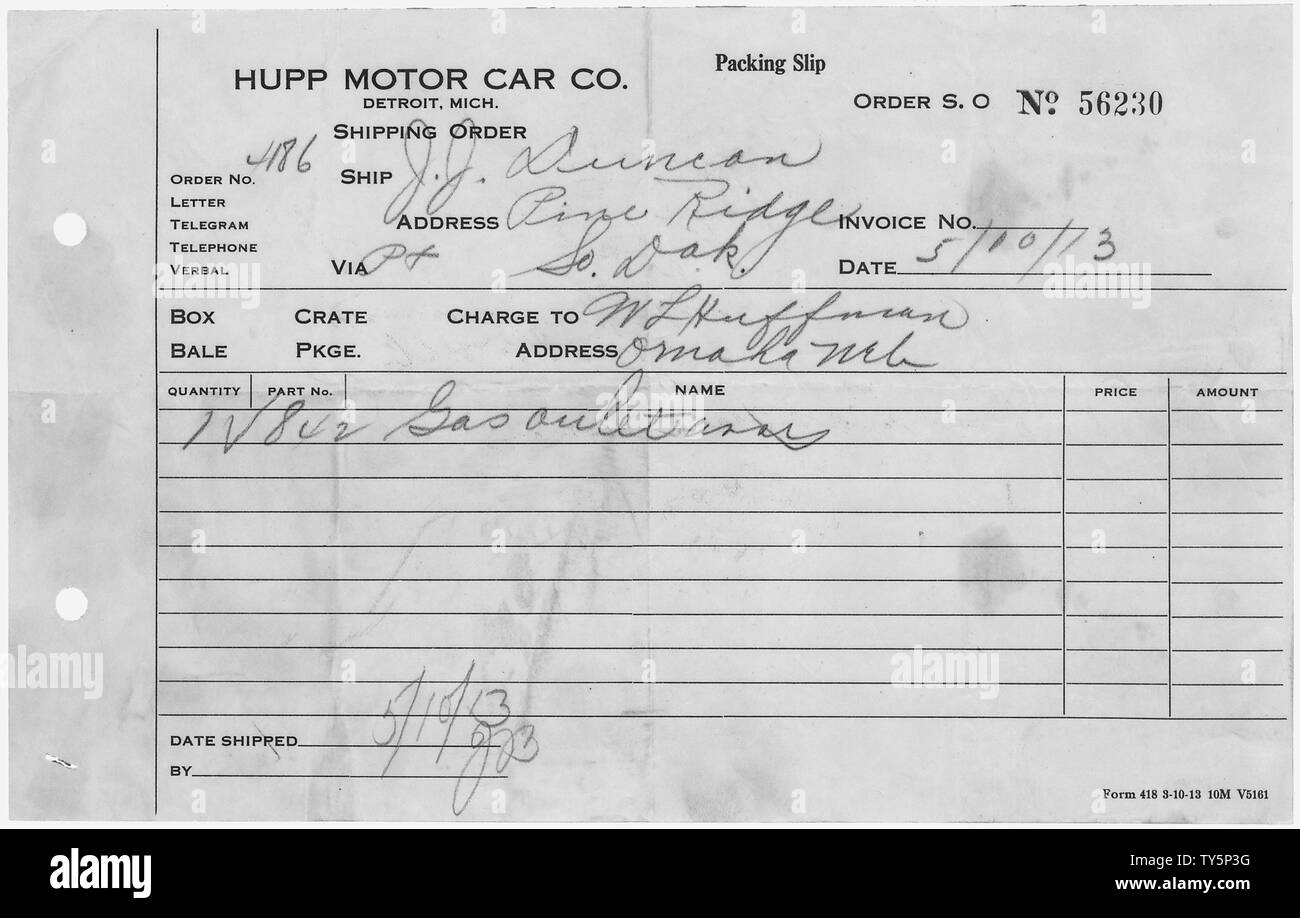 Packing Slip
HUPP MOTOR CAR CO.
DETROIT, MICH.
ORDER S. O No 56230
SHIPPING ORDER
ORDER No. 4186
SHIP J. J. Duncan
LETTER
TELEGRAM
ADDRESS Pine Ridge
INVOICE NO.
TELEPHONE
VERBAL
VIA Pt So. Dak.
DATE 5/10/13
BOX CRATE CHARGE TO W L Huffman
BALE PKGE. ADDRESS Omaha Neb
QUANTITY PART No. NAME PRICE AMOUNT
1 V842 Gas
5/10/13
DATE SHIPPED
BY
Form 418 3-10-13 10M V5161
alamy
alamy
Image ID: TY5P3G
www.alamy.com